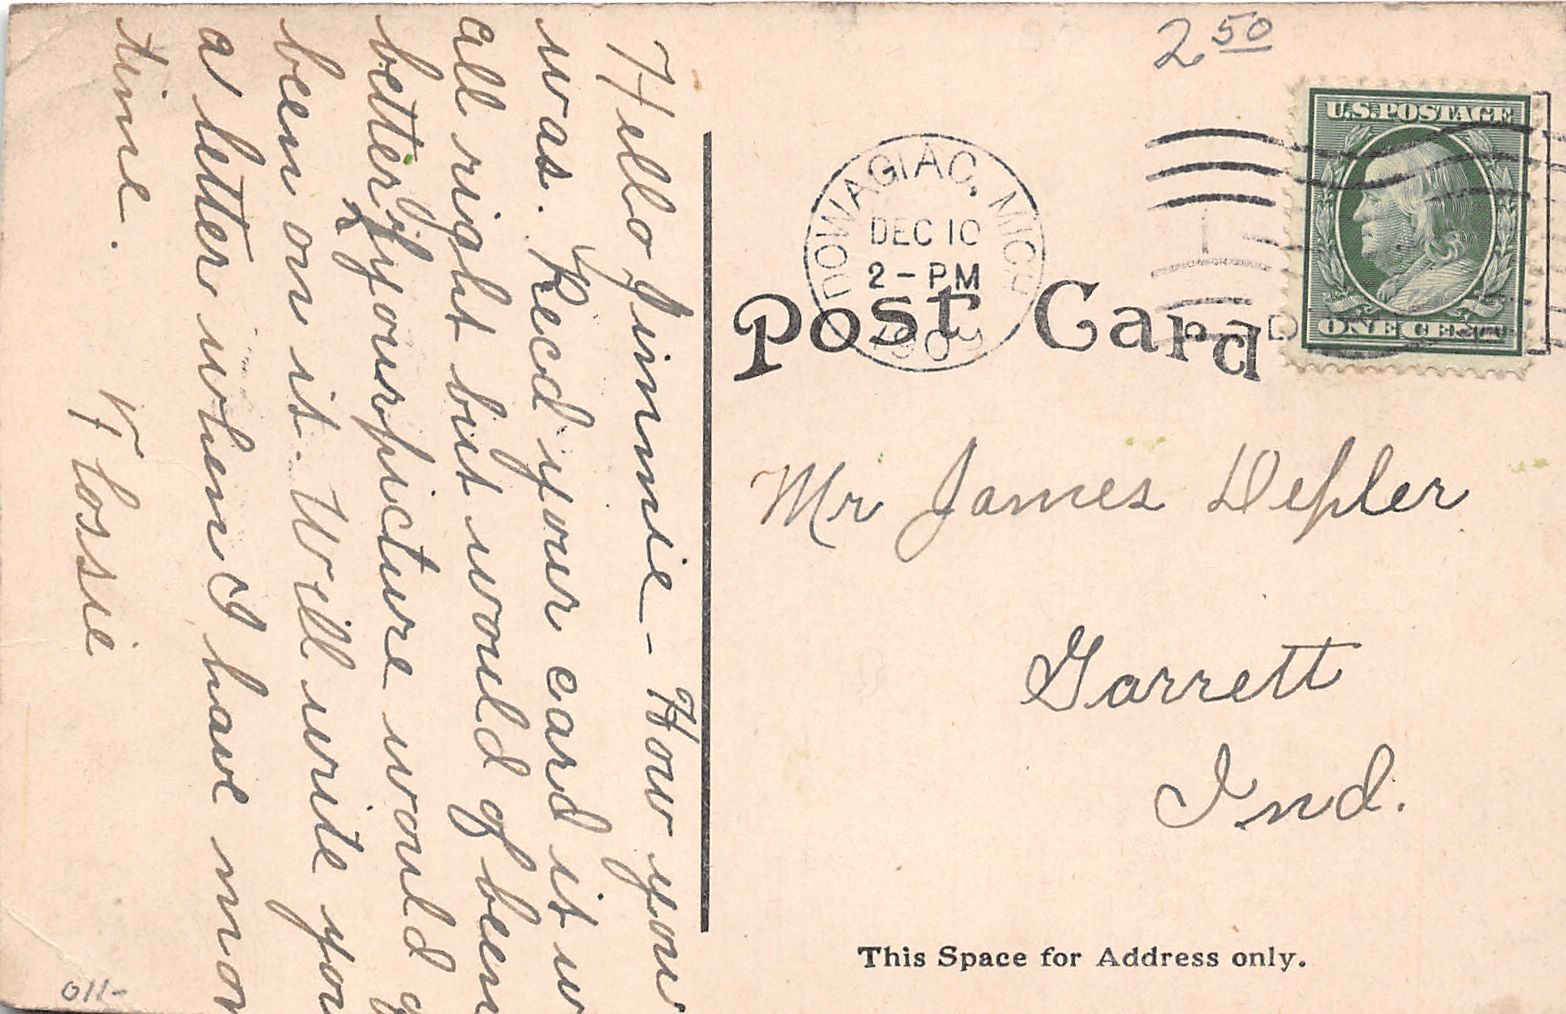 2 50
U.S. POSTAGE
DOWAGIAC, MICH
DEC 10
2 - PM
1909
ONE CENT
Post Card
Mr James Depler
Garrett
Ind.
This Space for Address only.
Hello Jimmie - How you
was. Recd your card it w
all right but would of been
better if your picture would o
been on it. Will write you
a letter when I have mor
time.
Flossie
011-